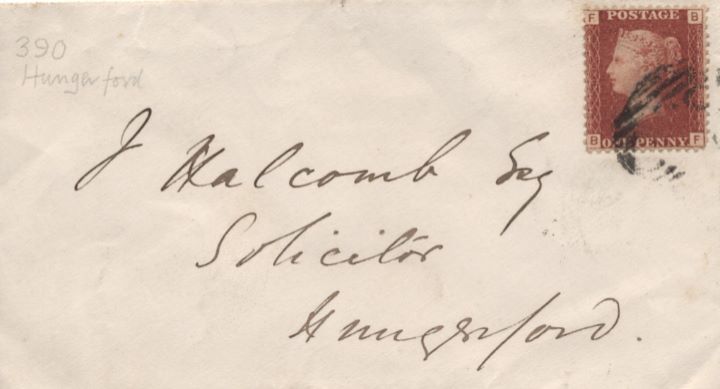 390
Hungerford
F POSTAGE B
B ONE PENNY F
J Halcomb Esq
Solicitor
Hungerford.